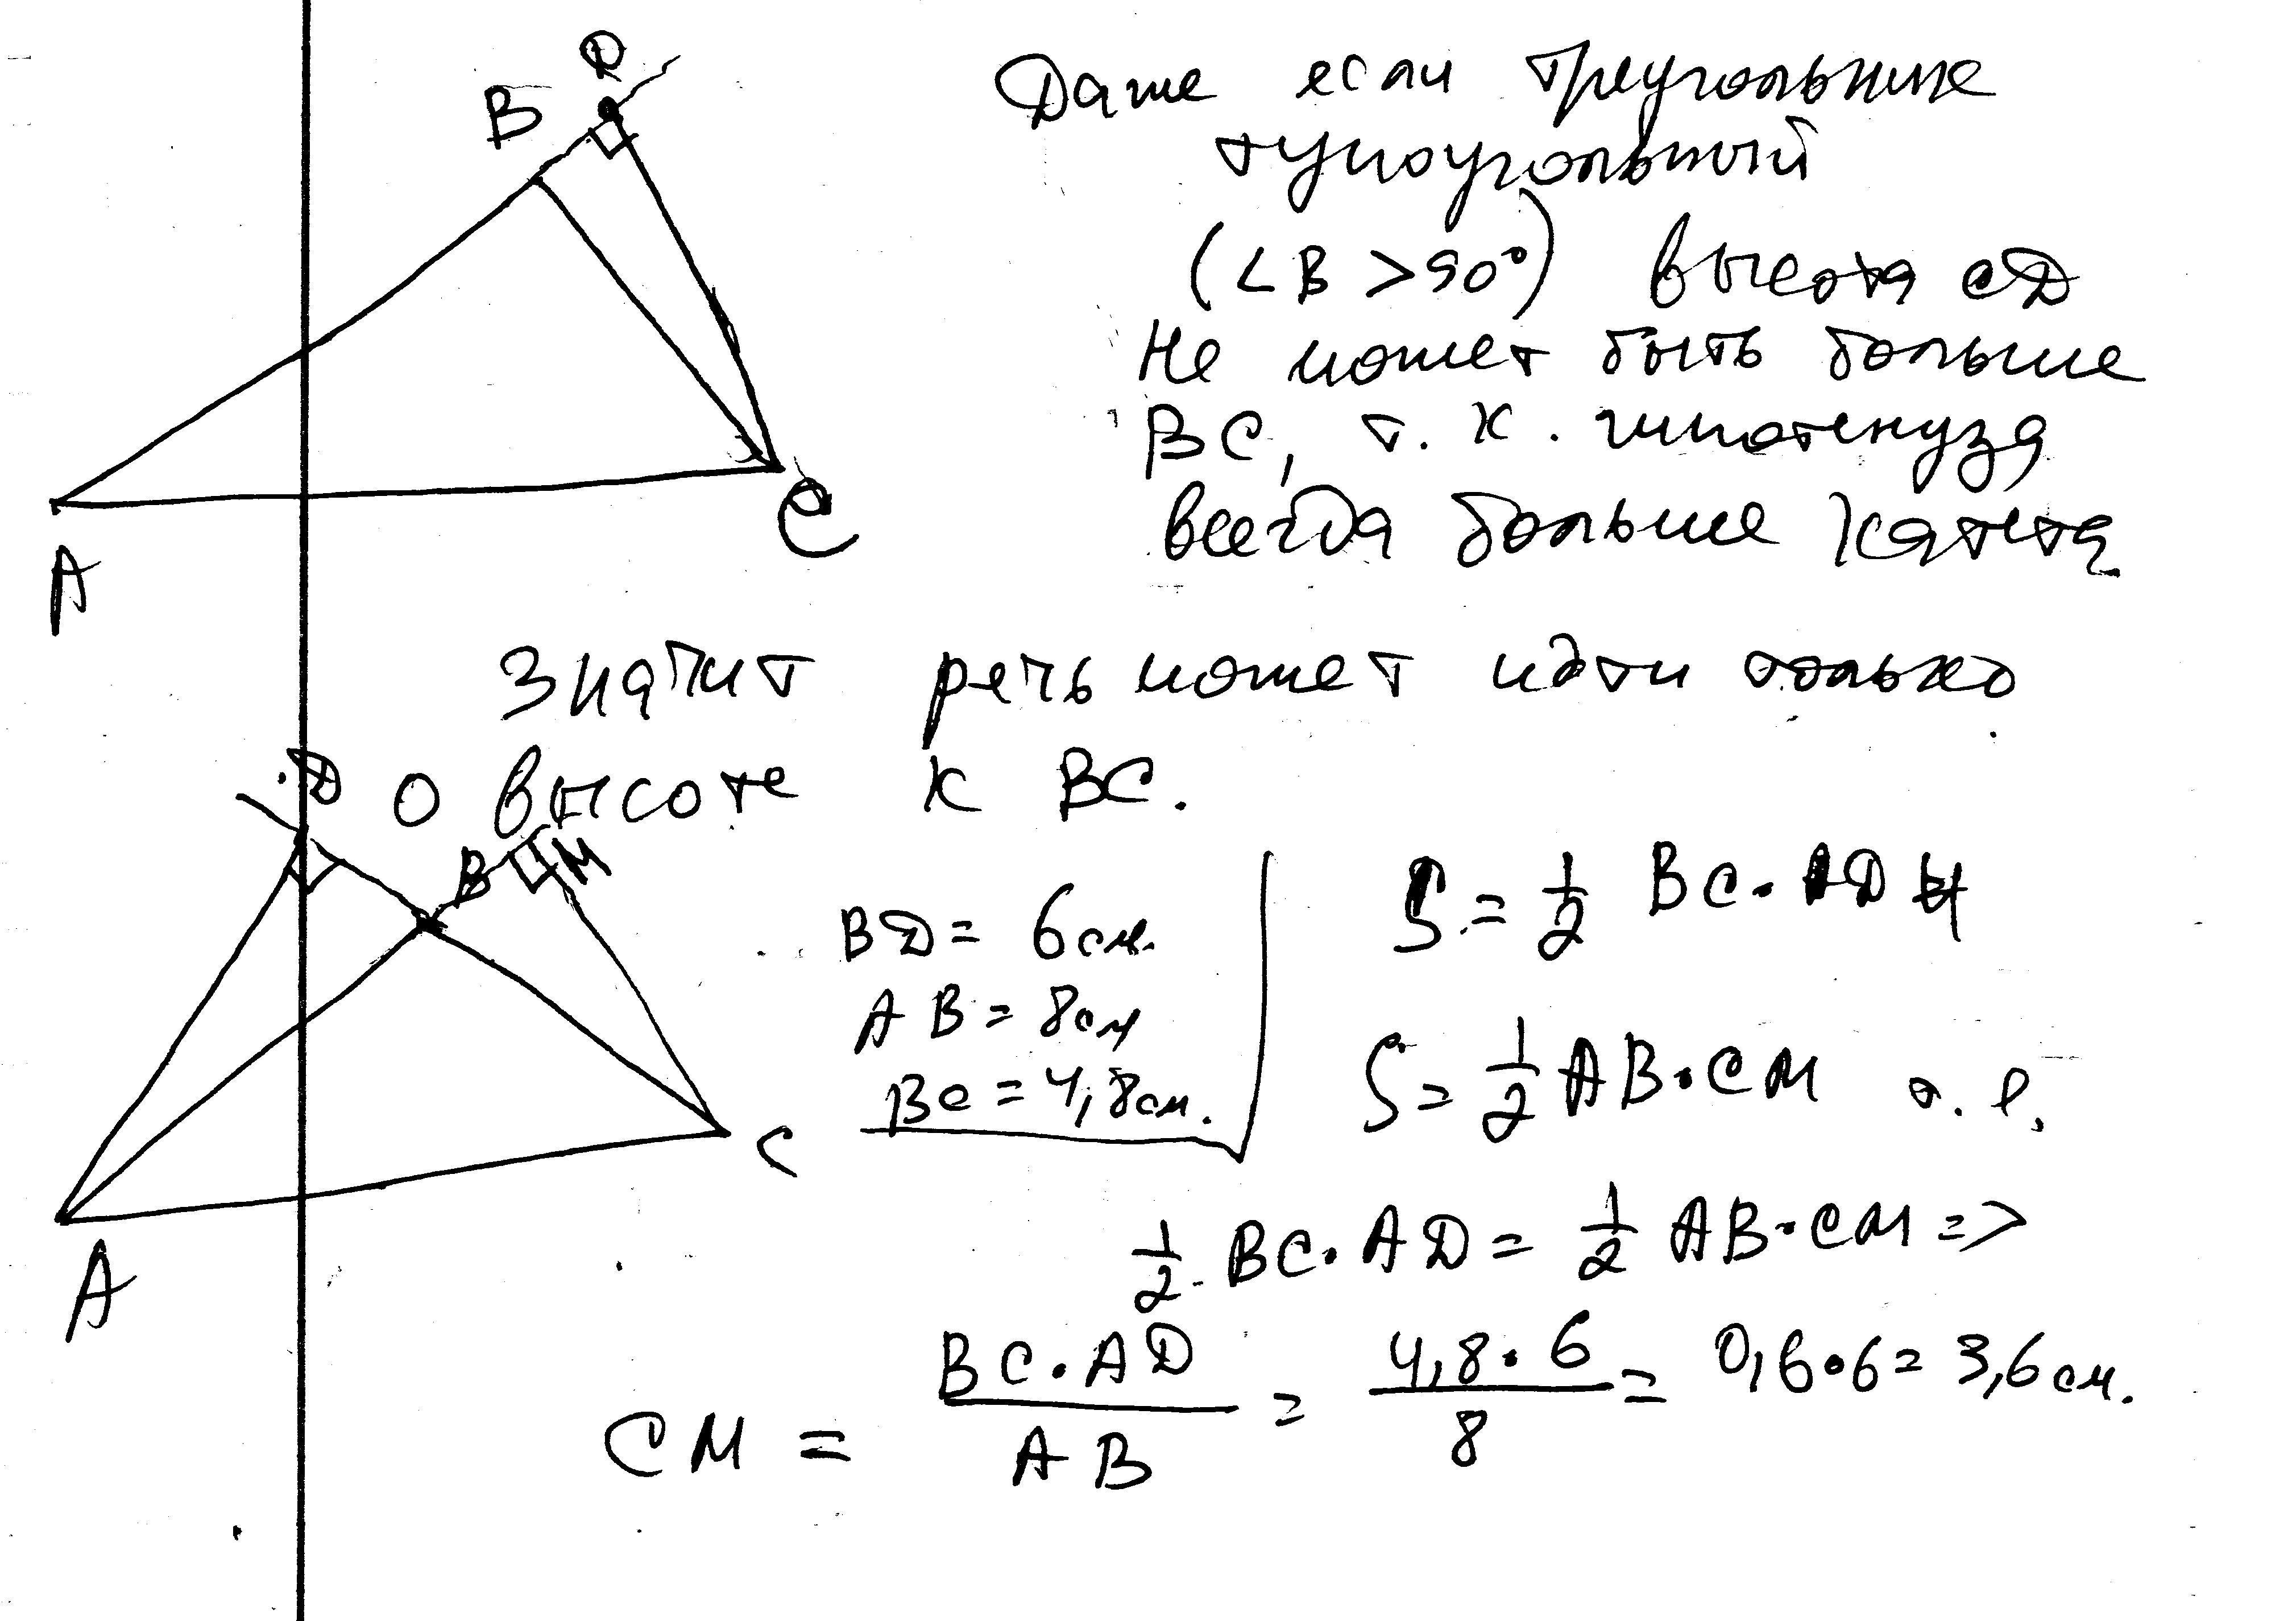 D
B
Даже если треугольник
тупоугольный
(∠B > 90°) высота CD
Не может быть больше
BC, т. к. гипотенуза
всегда больше катета
C
A
Значит речь может идти только
о высоте к BC.
D
B M
BD = 6 см.
AB = 8 см
BC = 4,8 см.
S = 1/2 BC · AD и
S = 1/2 AB · CM т. е.
C
A
1/2 · BC · AD = 1/2 AB · CM =>
CM = BC · AD / AB = 4,8 · 6 / 8 = 0,6 · 6 = 3,6 см.